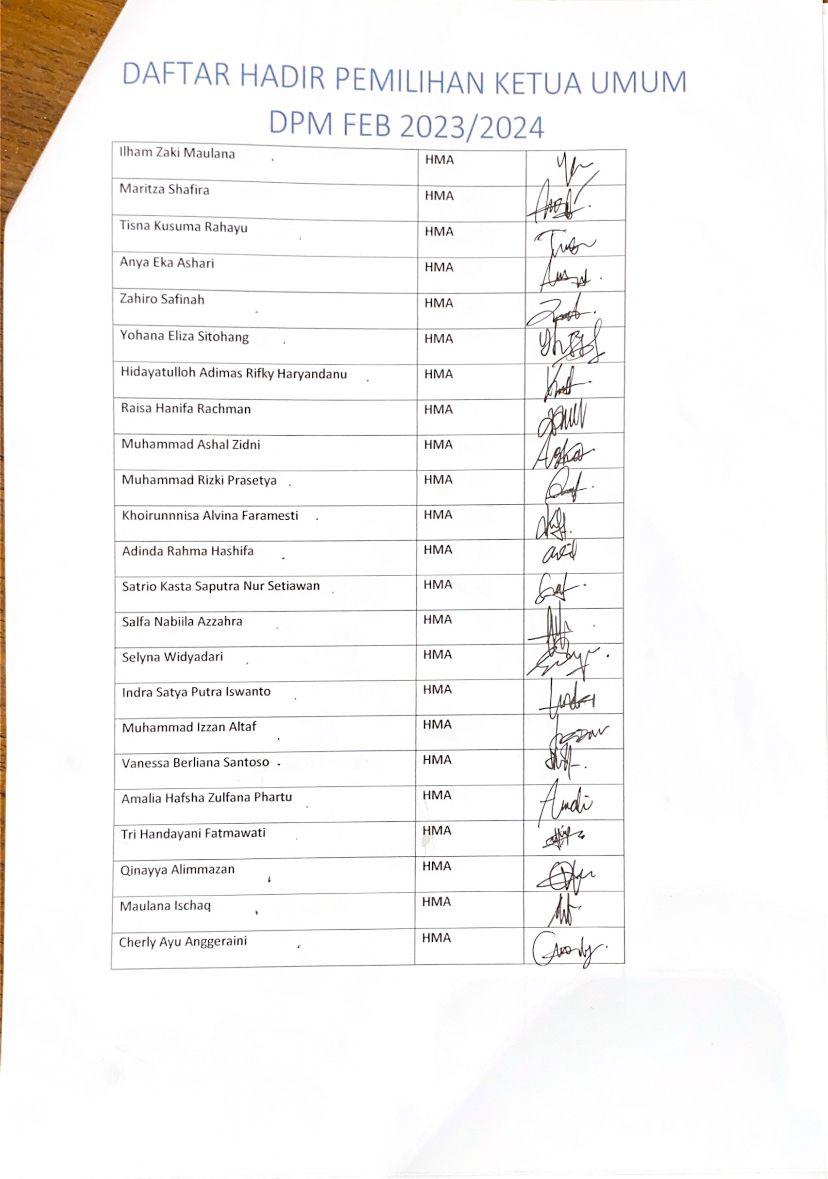 DAFTAR HADIR PEMILIHAN KETUA UMUM
DPM FEB 2023/2024
Ilham Zaki Maulana HMA
Maritza Shafira HMA
Tisna Kusuma Rahayu HMA
Anya Eka Ashari HMA
Zahiro Safinah HMA
Yohana Eliza Sitohang HMA
Hidayatulloh Adimas Rifky Haryandanu HMA
Raisa Hanifa Rachman HMA
Muhammad Ashal Zidni HMA
Muhammad Rizki Prasetya HMA
Khoirunnnisa Alvina Faramesti HMA
Adinda Rahma Hashifa HMA
Satrio Kasta Saputra Nur Setiawan HMA
Salfa Nabiila Azzahra HMA
Selyna Widyadari HMA
Indra Satya Putra Iswanto HMA
Muhammad Izzan Altaf HMA
Vanessa Berliana Santoso HMA
Amalia Hafsha Zulfana Phartu HMA
Tri Handayani Fatmawati HMA
Qinayya Alimmazan HMA
Maulana Ischaq HMA
Cherly Ayu Anggeraini HMA